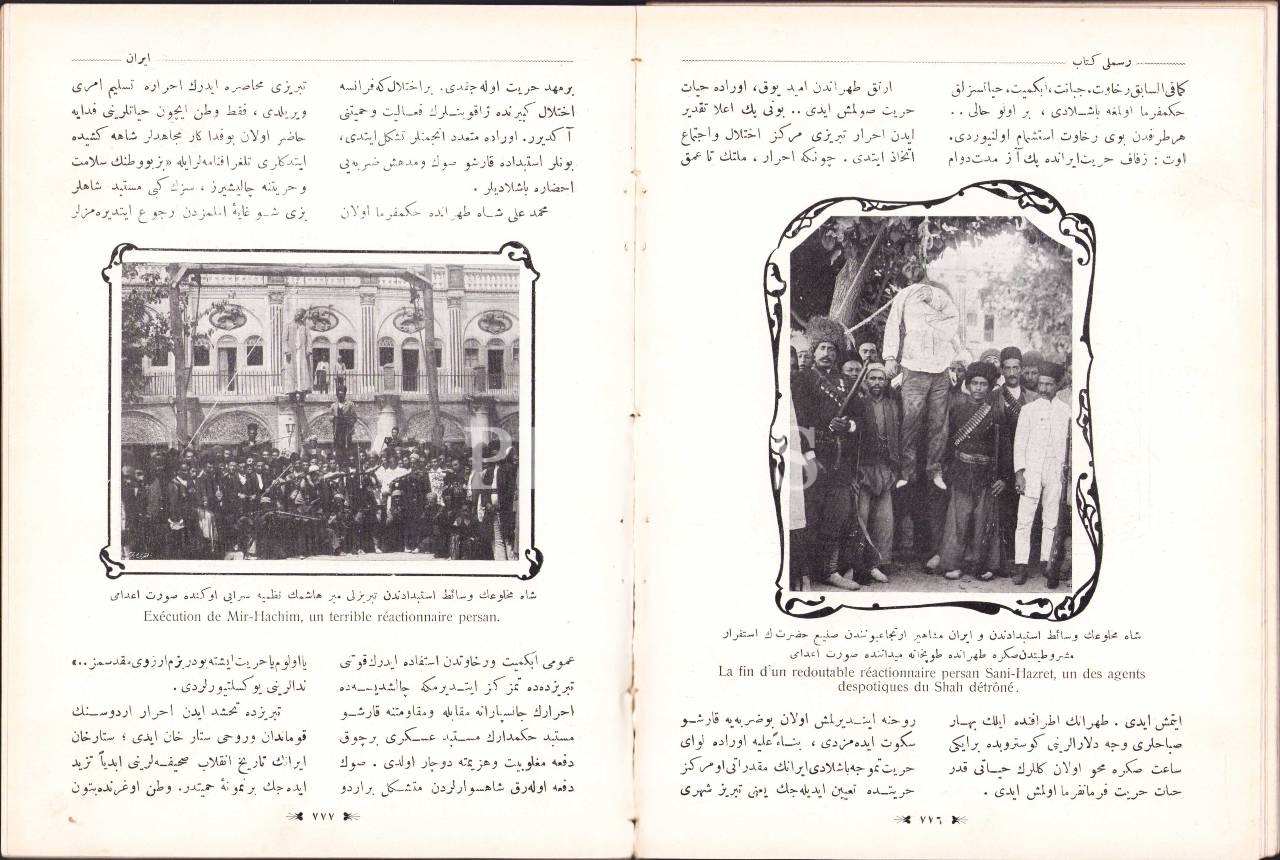 رسملی کتاب
کمافی السابق رخاوت، جبانت، ابکمیت، حیانسزلق
حکمفرما اولمغه باشلادی ، بر اولو حالی ..
هر طرفدن بوی رخاوت استشمام اولنیوردی.
اوت : زفاف حریت ایرانده پك آز مدت دوام
ارتق طهراندن امید یوق، اوراده حیات
حریت صولمش ایدی .. بونی پك اعلا تقدیر
ایدن احرار تبریزی مرکز اختلال و اجتماع
اتخاذ ایتدی . چونکه احرار ، ملتك تا عمق
شاه مخلوعك وسائط استبدادندن و ایران مشاهیر ارتجاعیونندن صنیع حضرتك استقرار
مشروطیتدن صکره طهرانده طوپخانه میداننده صورت اعدامی
La fin d'un redoutable réactionnaire persan Sani-Hazret, un des agents
despotiques du Shah détrôné.
ایتمش ایدی . طهرانك اطرافنده ایلك بهار
صباحلری وجه دلارالرینی کوستروبده برایکی
ساعت صکره محو اولان کللرك حیاتی قدر
حیات حریت فرمانفرما اولمش ایدی .
روحنه ایندیرلمش اولان بو ضربه یه قارشو
سکوت ایده مزدی ، بناءً علیه اوراده لوای
حریت تموجه باشلادی ایرانك مقدراتی او مرکز
حریتده تعیین ایدیله جك یعنی تبریز شهری
٧٧٦
ایران
بر مهد حریت اوله جقدی. بر اختلال که فرانسه
اختلال کبیرنده ژاقوبنلرك فعالیت و حمیتنی
آکدیرر. اوراده متعدد انجمنلر تشکل ایتدی،
بونلر استبداده قارشو صوك و مدهش ضربه یی
احضاره باشلادیلر .
محمد علی شاه طهرانده حکمفرما اولان
تبریزی محاصره ایدرك احراره تسلیم امری
ویریلدی ، فقط وطن ایچون حیاتلرینی فدایه
حاضر اولان بو فدا کار مجاهدلر شاهه کشیده
ایتدکاری تلغرافنامه لرایله «بز بو وطنك سلامت
و حریتنه چالیشیرز ، سزك کبی مستبد شاهلر
بزی شو غایۀ املمزدن رجوع ایتدیره مزلر
شاه مخلوعك وسائط استبدادندن تبریزلی میر هاشمك نظمیه سرایی اوکنده صورت اعدامی
Exécution de Mir-Hachim, un terrible réactionnaire persan.
عمومی ابکمیت و رخاوتدن استفاده ایدرك قوتنی
تبریزده ده تمرکز ایتدیرمکه چالشدیسه ده
احرارك جانسپارانه مقابله و مقاومتنه قارشو
مستبد حکمدارك مستبد عسکری برچوق
دفعه مغلوبیت و هزیمته دوچار اولدی . صوك
دفعه اوله رق شاهسوارلردن متشکل بر اردو
یا اولوم یا حریت ایشته بودر بزم ارزوی مقدسمز ..»
ندالرینی یوکسلتیورلردی .
تبریزده تحشد ایدن احرار اردوسنك
قوماندان و روحی ستار خان ایدی ؛ ستارخان
ایرانك تاریخ انقلاب صحیفه لرینی ابدیاً تزیید
ایده جك بر نمونۀ حمیتدر. وطن اوغرنده بتون
٧٧٧